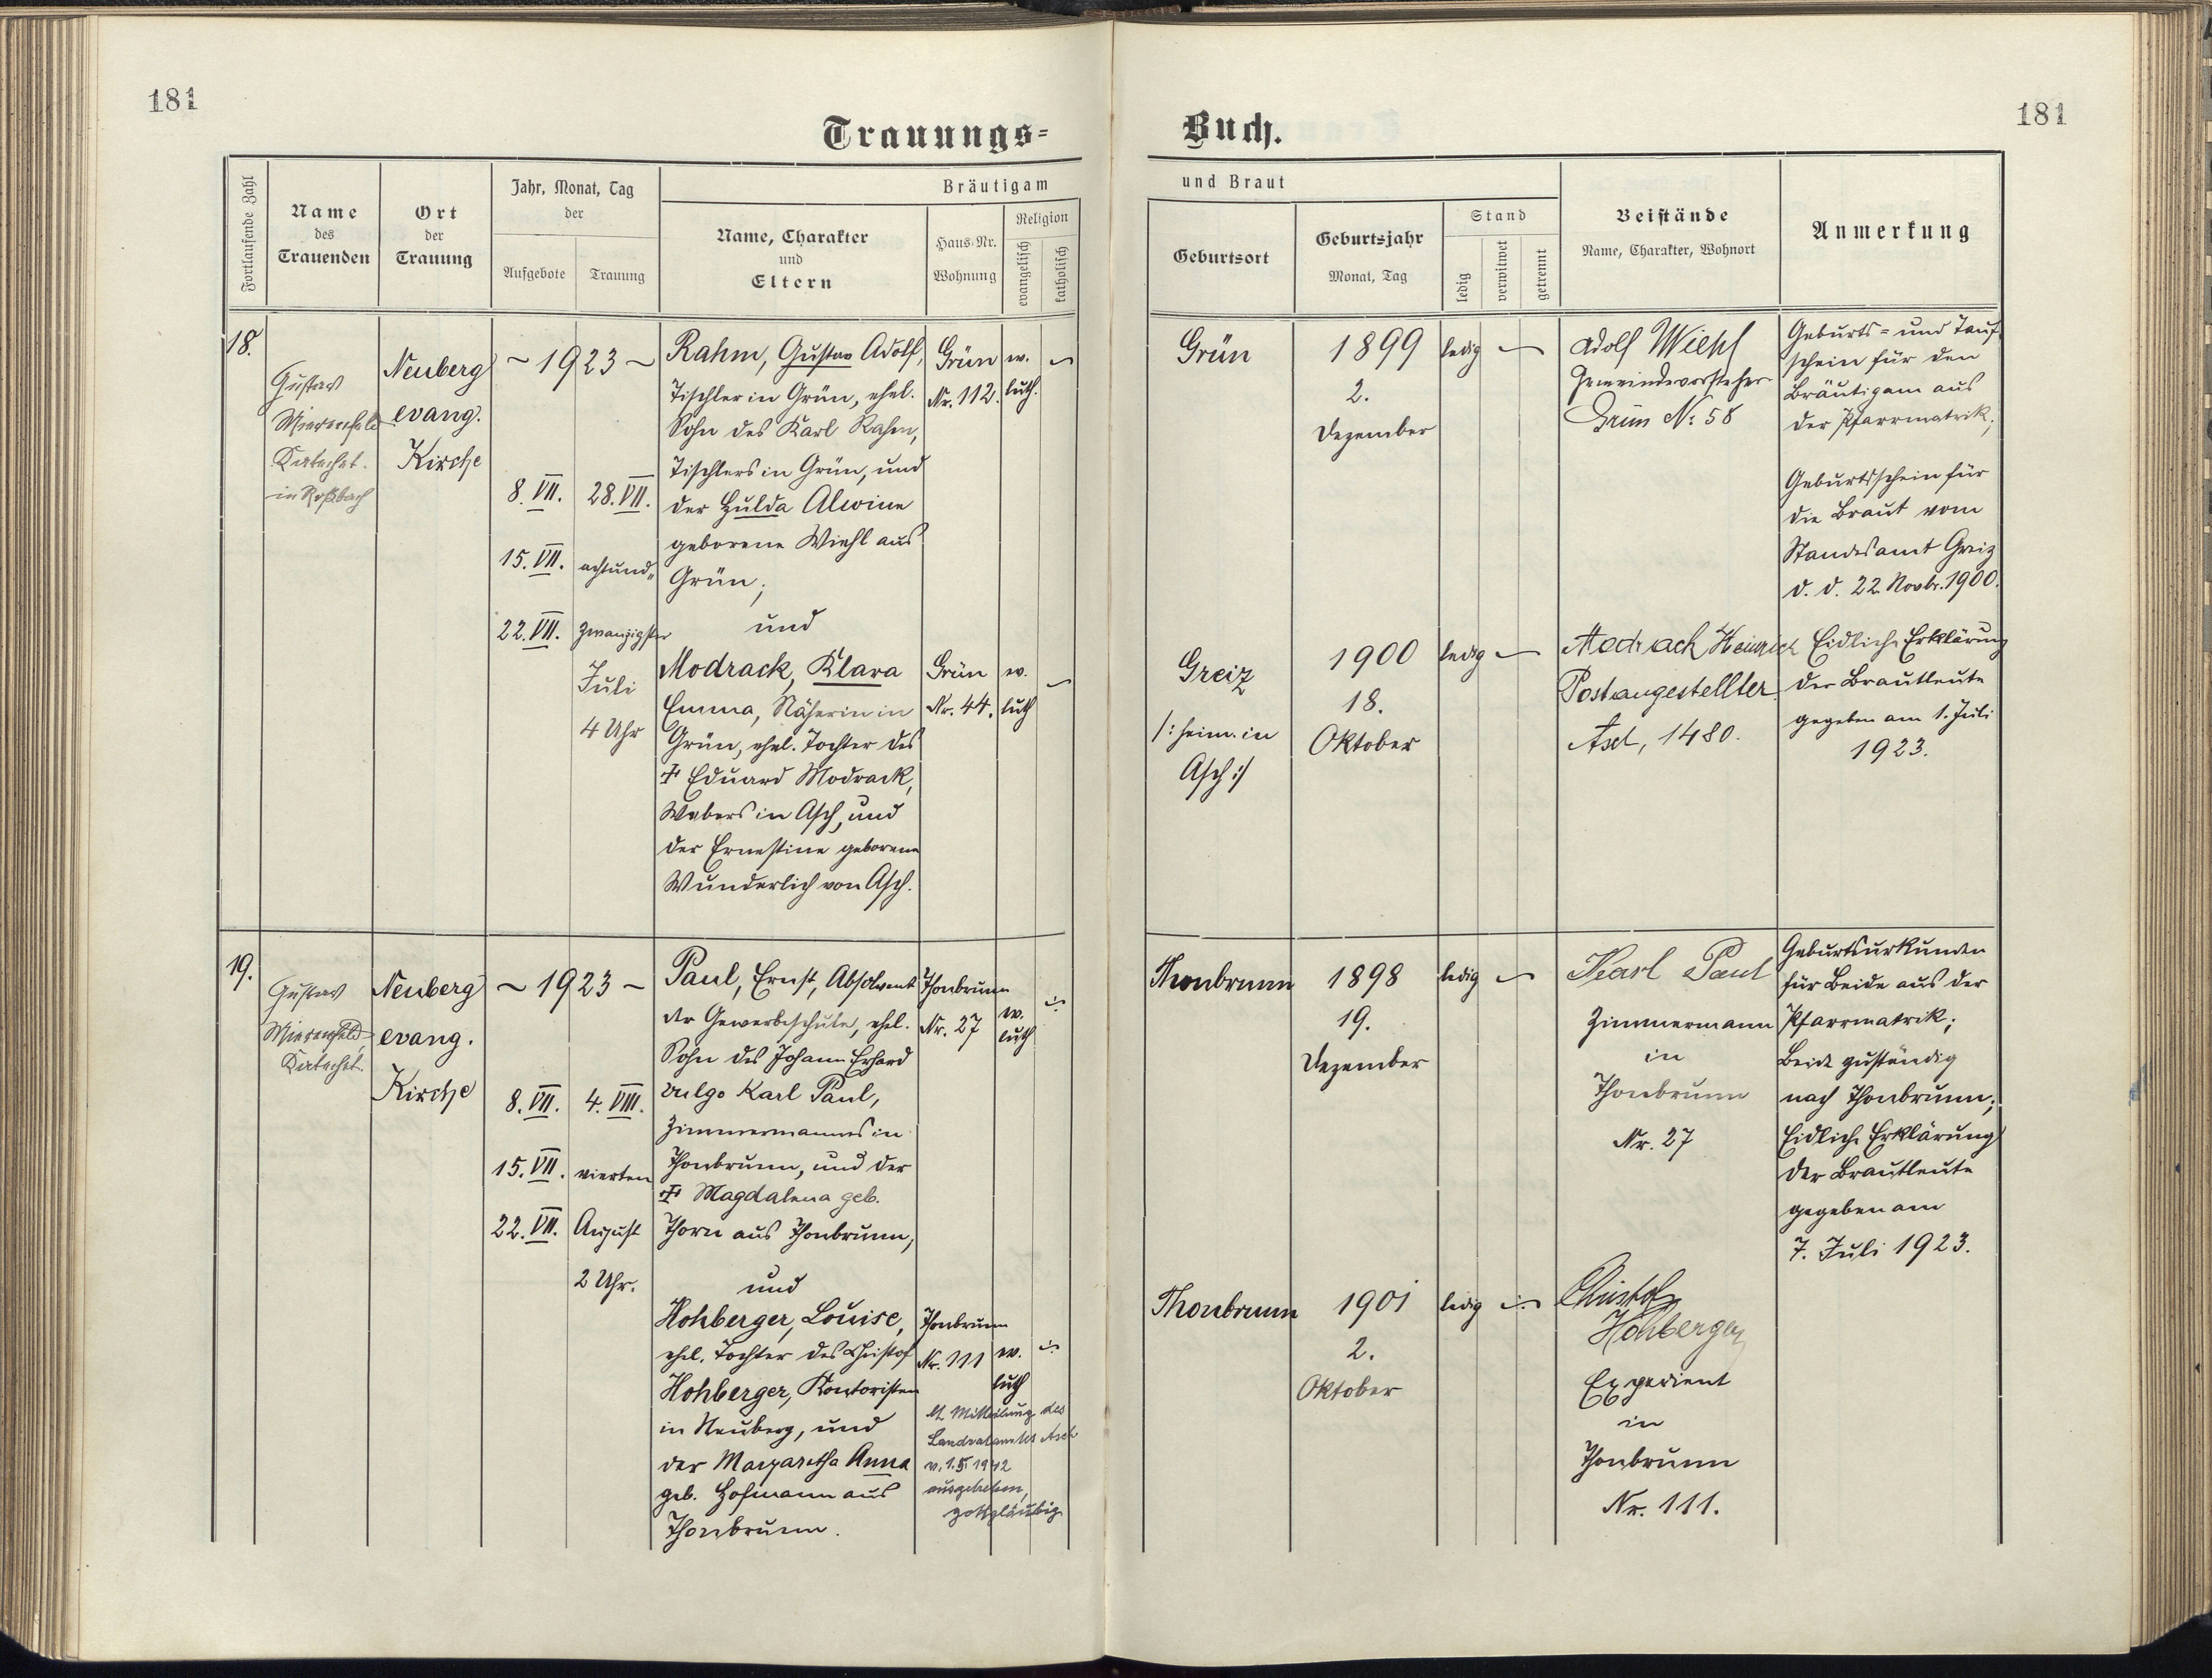 181
181
Trauungs=
Buch.
Fortlaufende Zahl
Name
des
Trauenden
Ort
der
Trauung
Jahr, Monat, Tag
der
Aufgebote
Trauung
Bräutigam
Name, Charakter
und
Eltern
Haus-Nr.
Wohnung
Religion
evangelisch
katholisch
und Braut
Geburtsort
Geburtsjahr
Monat, Tag
Stand
ledig
verwitwet
getrennt
Beistände
Name, Charakter, Wohnort
Anmerkung
18.
Gustav
Katechet.
in Roßbach
Neuberg
evang.
Kirche
~ 1923 ~
8. VII.
15. VII.
22. VII.
28. VII.
achtund„
zwanzigster
Juli
4 Uhr
Rahm, Gustav Adolf,
Tischler in Grün, ehel.
Sohn des Karl Rahm,
Tischlers in Grün, und
der Hulda Alwine
geborene Wiehl aus
Grün;
und
Modrack, Klara
Emma, Näherin in
Grün, ehel. Tochter des
‡ Eduard Modrack,
Webers in Asch, und
der Ernestine geborene
Wunderlich von Asch.
Grün
Nr. 112.
ev.
luth.
Grün
Nr. 44.
ev.
luth
Grün
1899
2.
Dezember
ledig
Adolf Wiehl
Gemeindevorsteher
Grün No: 58
Geburts= und Tauf
schein für den
Bräutigam aus
der Pfarrmatrik;
Geburtsschein für
die Braut vom
Standesamt Greiz
d. d. 22. Novbr. 1900.
Greiz
/: heim. in
Asch :/
1900
18.
Oktober
ledig
Modrack Heinrich
Postangestellter
Asch, 1480.
Eidliche Erklärung
der Brautleute
gegeben am 1. Juli
1923.
19.
Gustav
Katechet.
Neuberg
evang.
Kirche
~ 1923 ~
8. VII.
15. VII.
22. VII.
4. VIII.
vierten
August
2 Uhr.
Paul, Ernst, Absolvent
der Gewerbeschule, ehel.
Sohn des Johann Erhard
vulgo Karl Paul,
Zimmermannes in
Thonbrunn, und der
‡ Magdalena geb.
Thorn aus Thonbrunn,
und
Hohberger, Louise,
ehel. Tochter des Christof
Hohberger, Kontoristen
in Neuberg, und
der Margaretha Anna
geb. Hofmann aus
Thonbrunn.
Thonbrunn
Nr. 27
ev.
luth
Thonbrunn
Nr. 111
ev.
luth
lt. Mitteilung des
Landratamtes Asch
v. 1.5.1942
gottgläubig
Thonbrunn
1898
19.
Dezember
ledig
Karl Paul
Zimmermann
in
Thonbrunn
Nr. 27
Geburtsurkunden
für Beide aus der
Pfarrmatrik;
Beide zuständig
nach Thonbrunn;
Eidliche Erklärung
der Brautleute
gegeben am
7. Juli 1923.
Thonbrunn
1901
2.
Oktober
ledig
Christof
Hohberger
Expedient
in
Thonbrunn
Nr. 111.